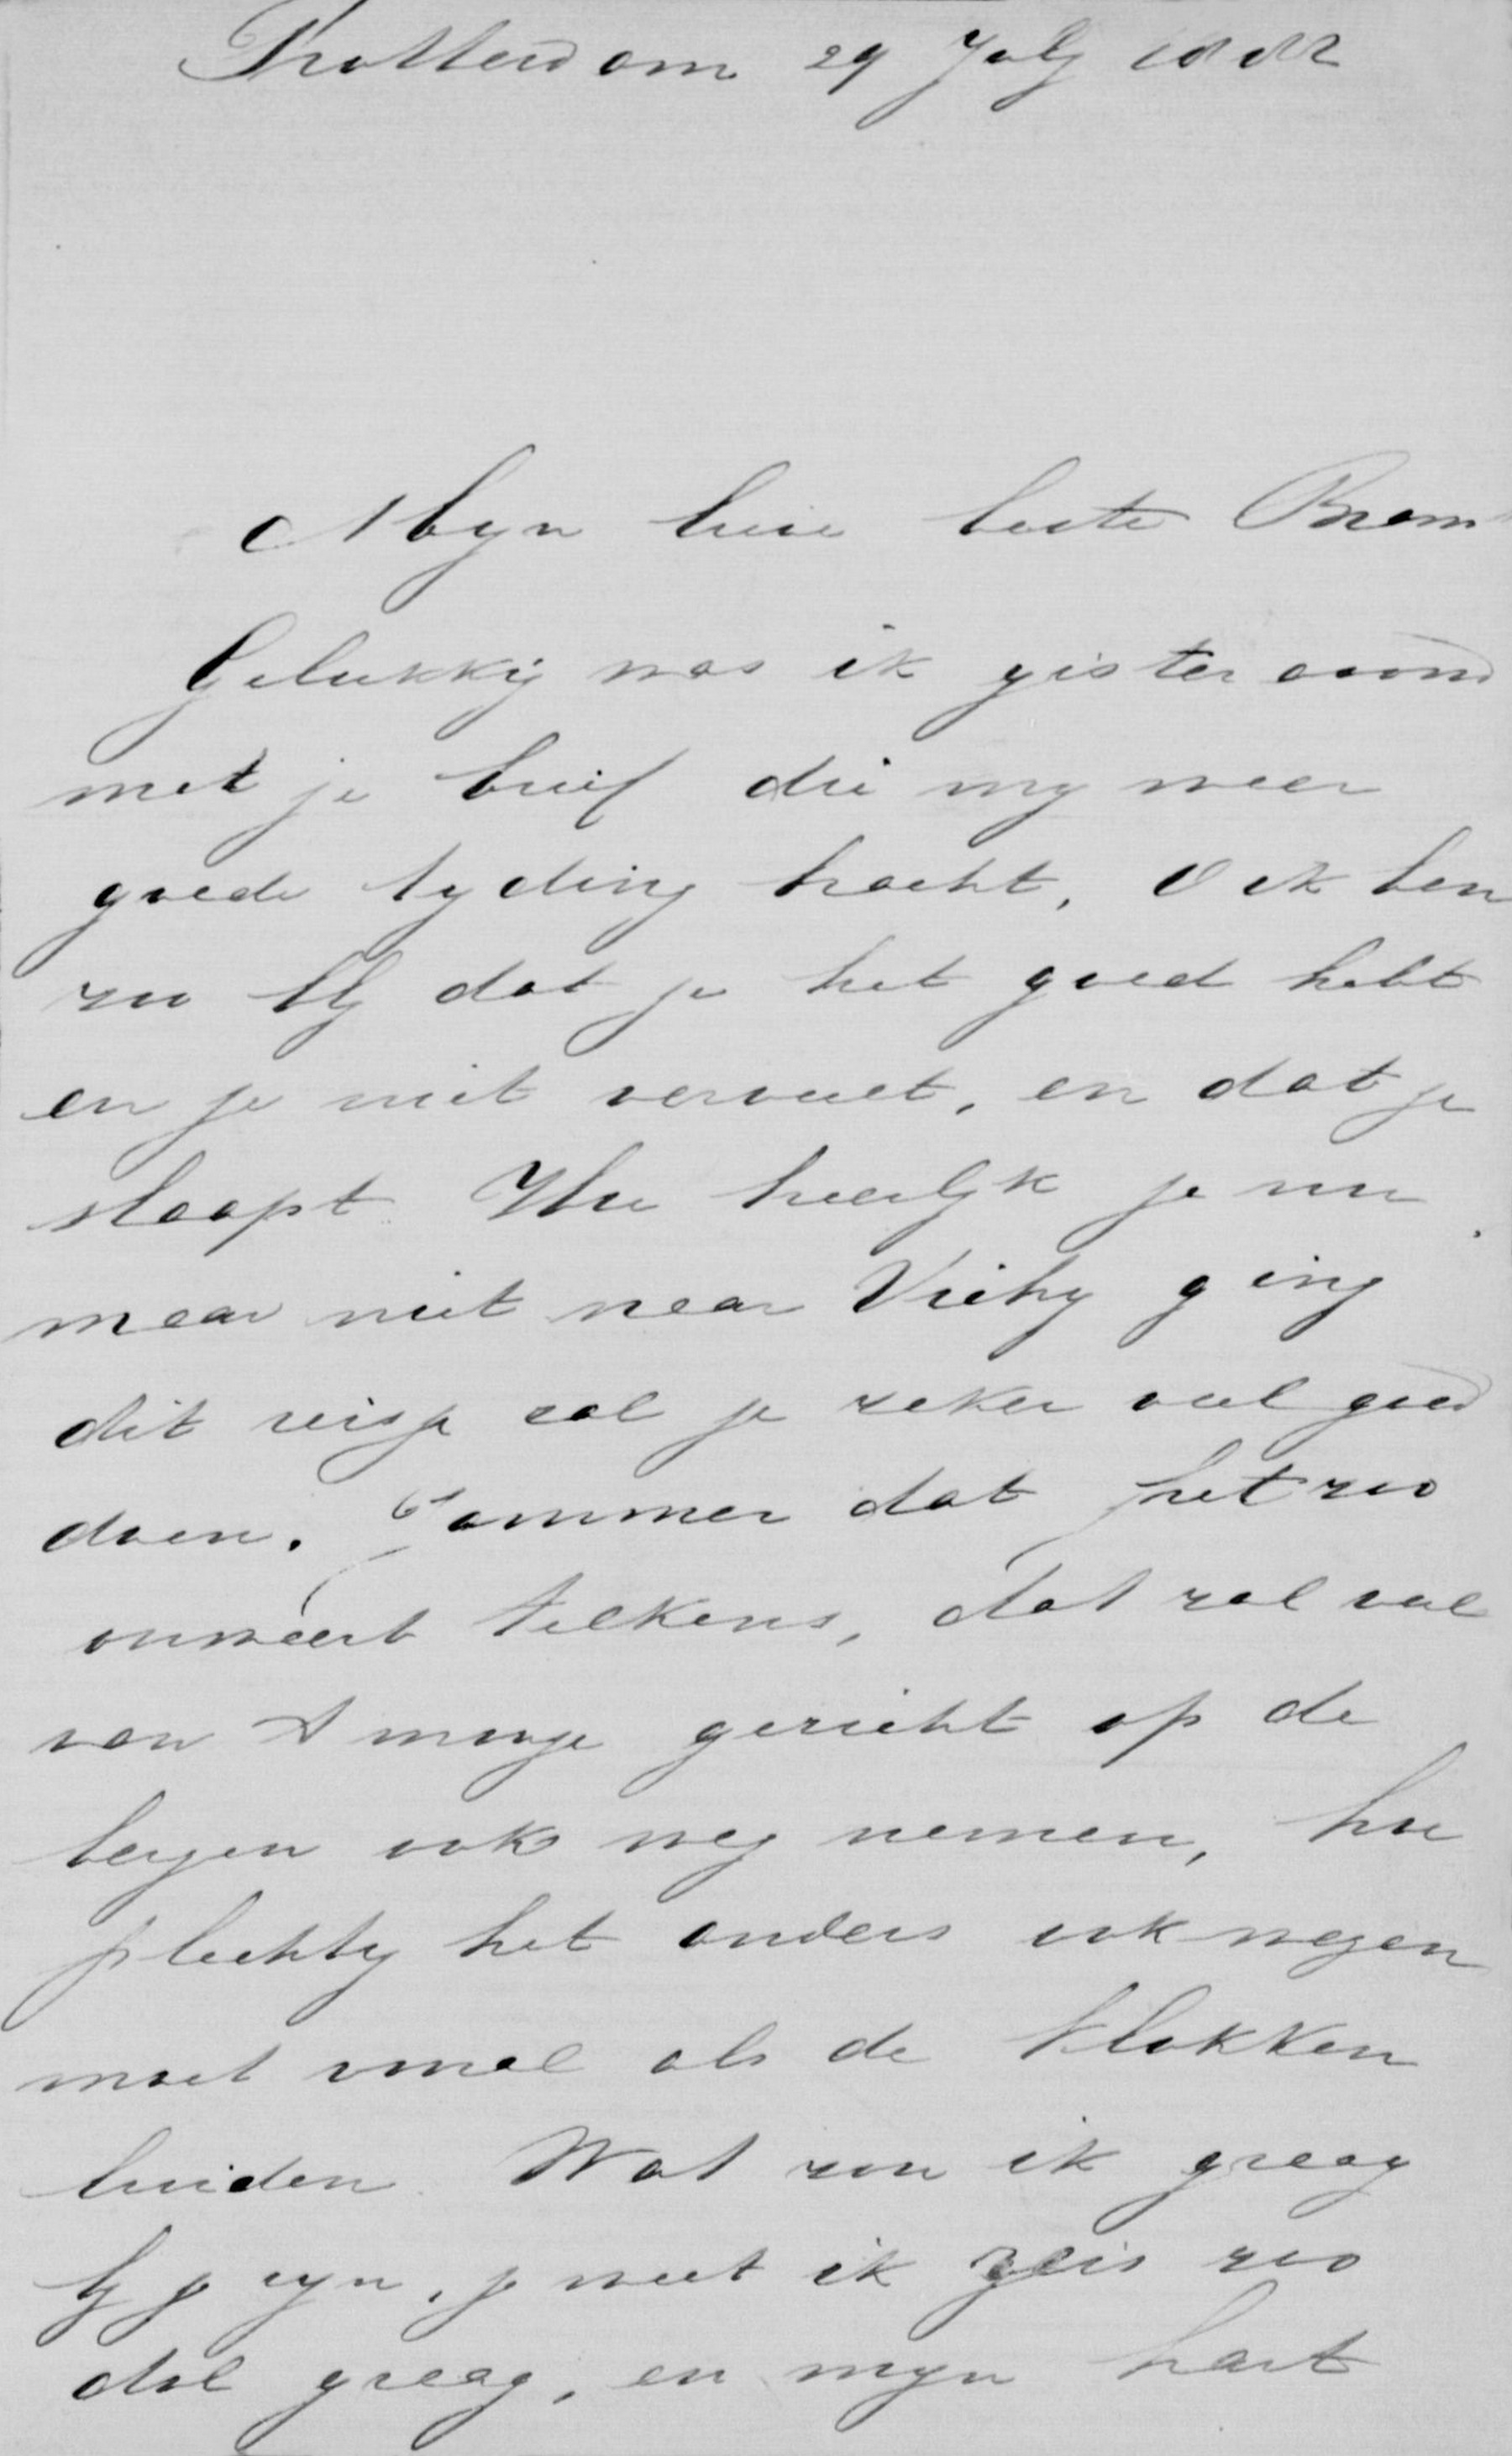 Rotterdam 29 July 1882
Myn lieve beste Bram
Gelukkig was ik gister avond
met je brief die my weer
goede tyding bracht, O ik ben
zoo bly dat je het goed hebt
en je niet verveelt, en dat je
slaapt Hoe heerlyk je nu
maar niet naar Vichy ging
dit reisje zal je zeker veel goed
doen. Jammer dat het zoo
onweert telkens, dat zal veel
van t mooije gezicht op de
bergen ook weg nemen, hoe
plechtig het anders ook wezen
moet vooral als de klokken
luiden. Wat zou ik graag
by je zyn, je weet ik reis zoo
dol graag, en myn hart